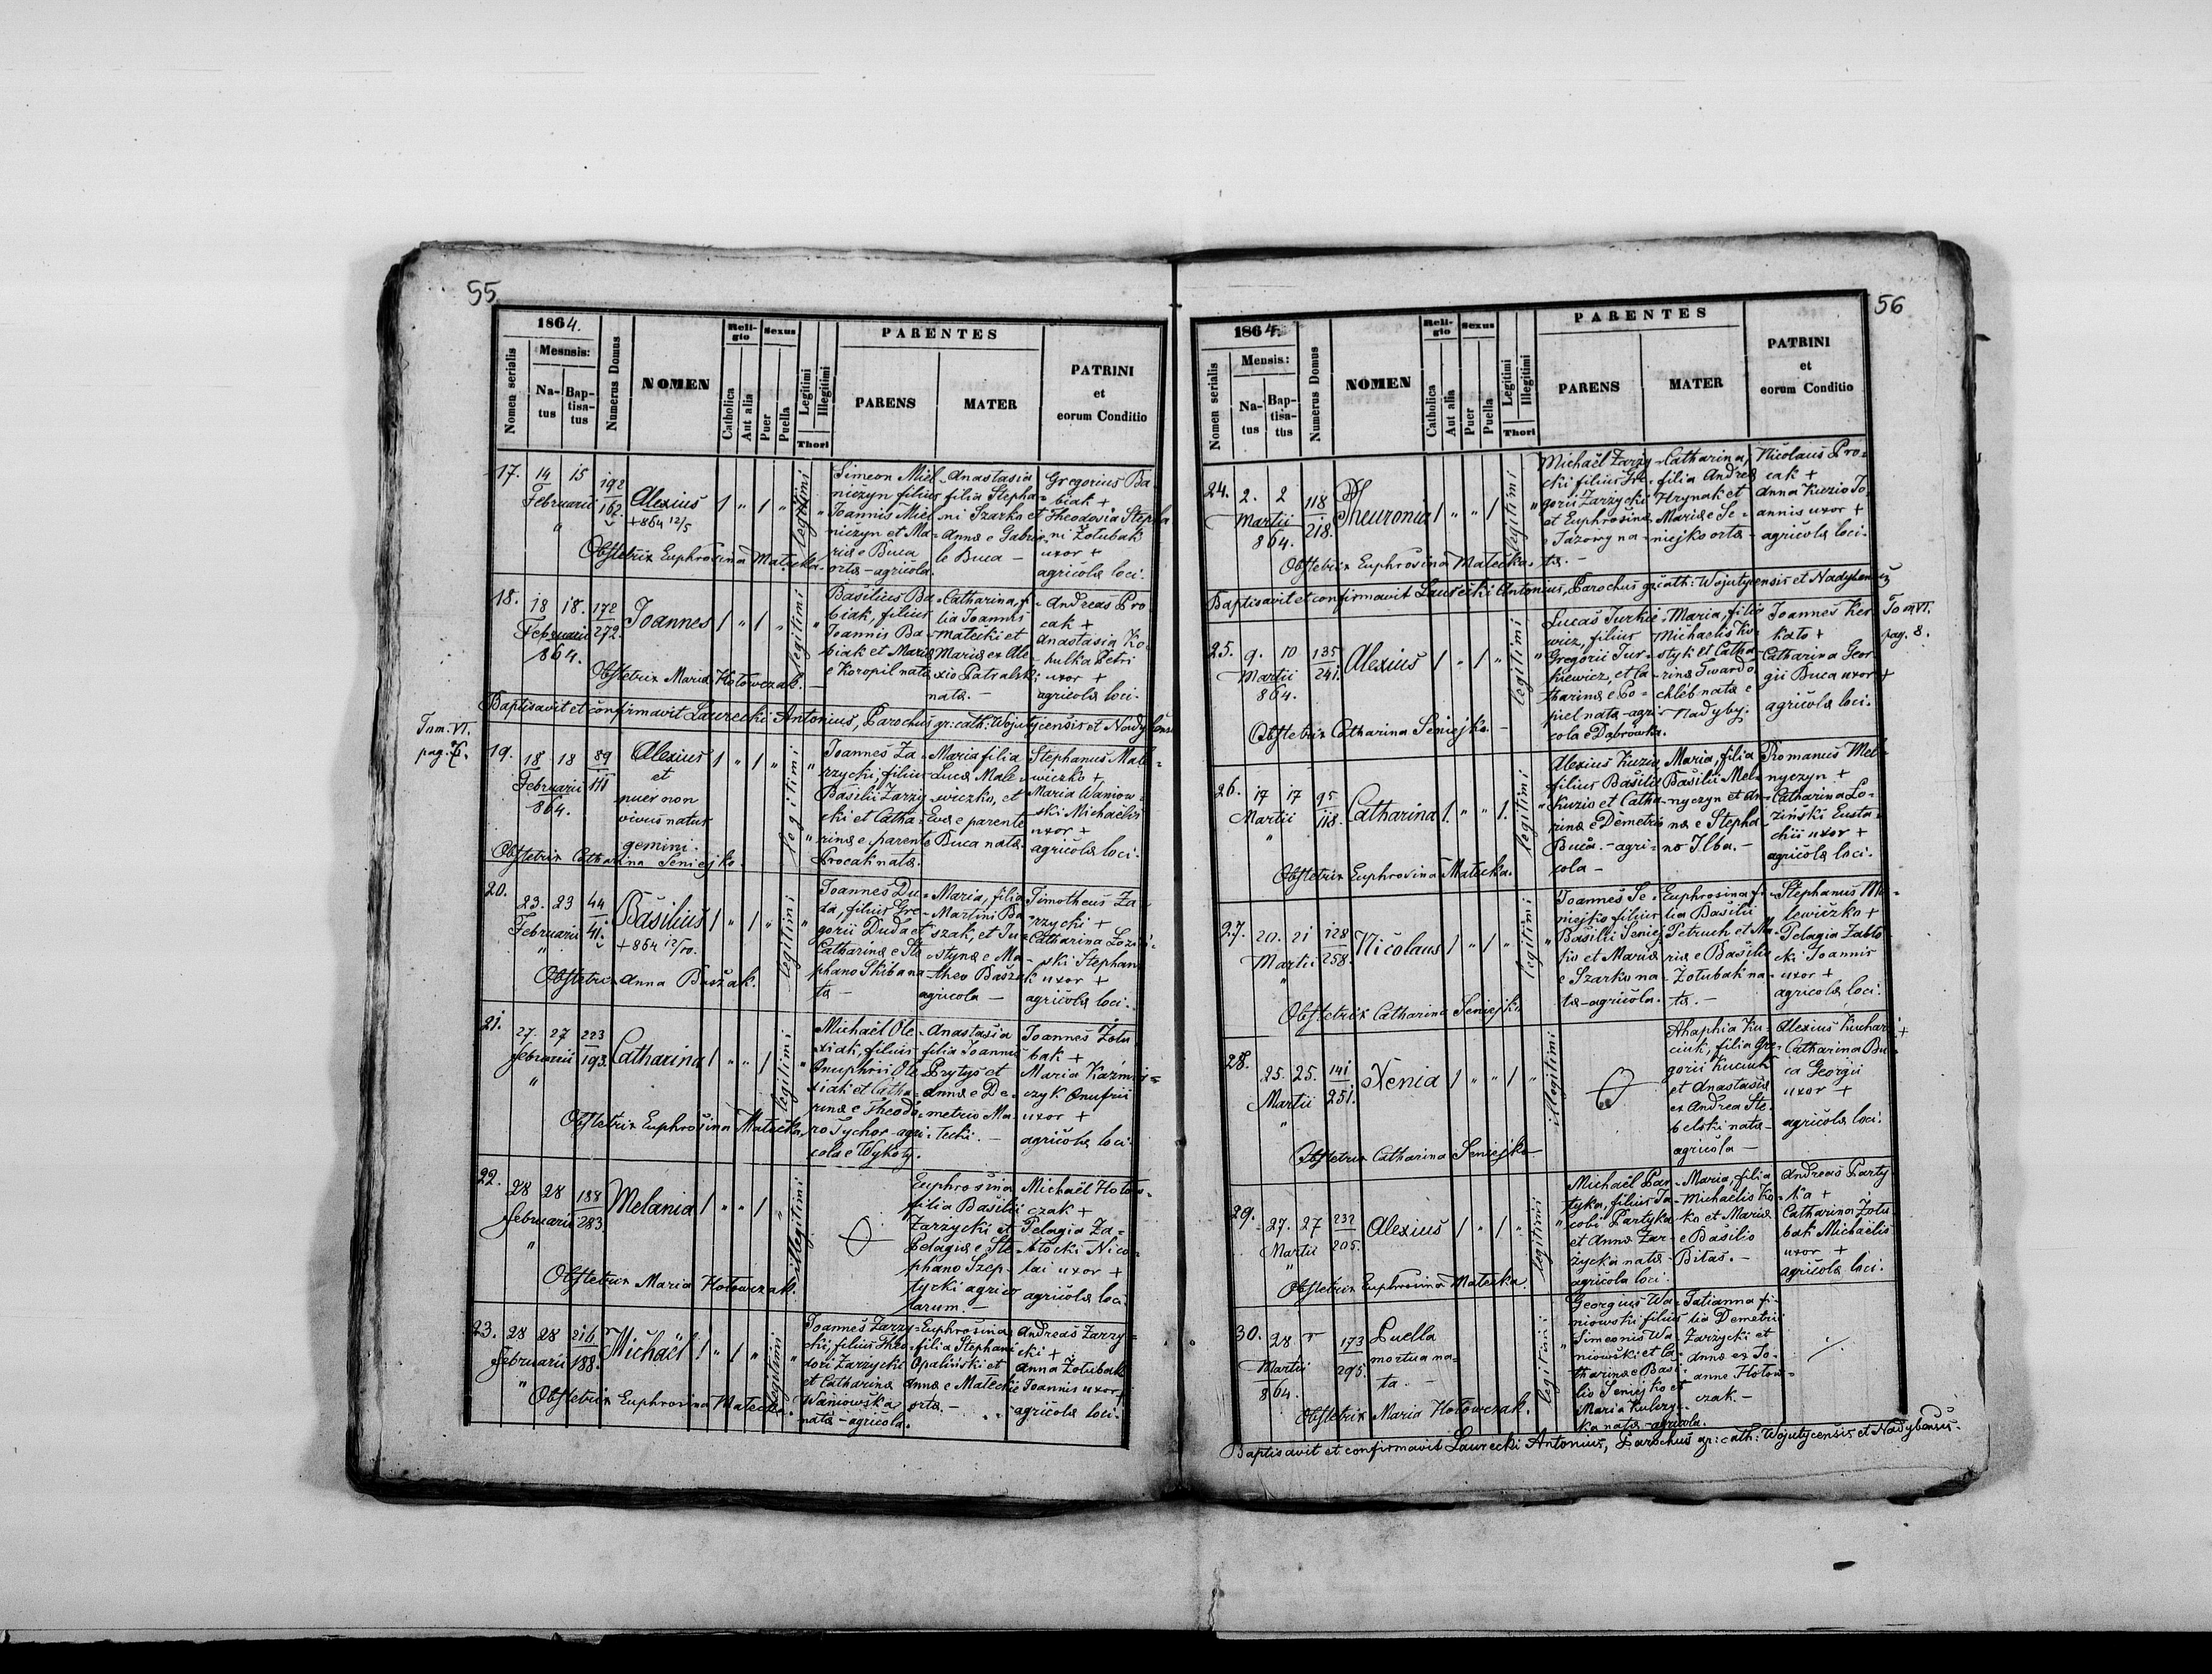 55
1864.
Nomen serialis
Mesnsis:
Na-
tus
Bap-
tisa-
tus
Numerus Domus
NOMEN
Reli-
gio
Catholica
Aut alia
Sexus
Puer
Puella
Legitimi
Illegitimi
Thori
PARENTES
PARENS
MATER
PATRINI
et
eorum Conditio
17.
14 15
Februarii
"
192
162.
Alexius
+864 12/5
1 " 1 "
legitimi
"
Simeon Miel-
niczyn filius
Joannis Miel-
niczyn et Ma-
riæ e Buca
ortæ - agricola.
Anastasia
filia Stepha-
ni Szarko et
Annæ e Gabrie-
le Buca -
Gregorius Ba-
biak +
Theodosia Stepha
ni Zołubak
uxor +
agricolæ loci.
Obstetrix Euphrosina Matecka.
18.
18 18.
Februarii
864.
172
272.
Joannes
1 " 1 "
legitimi
"
Basilius Ba-
biak, filius
Joannis Ba-
biak et Mariæ
e Koropil natæ
Catharina, fi-
lia Joannis
Matecki et
Mariæ ex Ale-
xio Patralski
nata. -
Andreas Pro
cak +
Anastasia Ko-
hulka Petri
uxor +
agricolæ loci.
Obstetrix Maria Hołowczak. -
Baptisavit et confirmavit Laurecki Antonius, Parochus gr: cath: Wojutycensis et Nadybensis
Tom. VI.
pag. 7.
19.
18 18
Februarii
864.
89
111
Alexius
et
puer non
vivus natus
gemini.
1 " 1 "
legitimi
"
"
Joannes Za-
rzycki, filius
Basilii Zarzy-
cki et Catha-
rinæ e parente
Procak natæ.
Maria filia
Lucæ Male-
wiczko, et
Evæ e parente
Buca natæ.
Stephanus Male-
wiczko +
Maria Waniow-
ski Michaelis
uxor +
agricolæ loci.
Obstetrix Catharina Seniejko.
20.
23. 23
Februarii
"
44
41.
Basilius
+864 12/10.
1 " 1 "
legitimi
"
Joannes Du-
da, filius Gre-
gorii Duda et
Catharinæ e Ste-
phano Skiba na-
tæ -
Maria, filia
Martini Ba
szak, et Ju-
stynæ e Ma-
theo Baszak
agricola -
Timotheus Za
rzycki +
Catharina Łozi-
ski Stephani
uxor +
agricolæ loci.
Obstetrix Anna Baszak.
21.
27. 27
Februarii
"
223
193.
Catharina
1 " " 1
legitimi
"
Michaël Ole-
xiak, filius
Onuphrii Ole-
xiak et Catha-
rinæ e Theodo-
ro Tychor - agri-
cola e Wykoty.
Anastasia
filia Joannis
Prytys et
Annæ e De-
metrio Ma-
tecki. -
Joannes Zołu
bak +
Maria Kazimir-
czyk Onufrii
uxor +
agricolæ loci.
Obstetrix Euphrosina Matecka
22.
28 28
Februarii
"
188
283
Melania
1 " " 1
"
illegitimi
Euphrosina
filia Basilii
Zarzycki et
Pelagiæ e Ste-
phano Szep-
tycki agrico
larum. -
Michaël Hołow-
czak +
Pelagia Za-
błocki Nico-
lai uxor +
agricolæ loci.
Obstetrix Maria Hołowczak.
23.
28 28
Februarii
"
216
188.
Michaël
1 " 1 "
legitimi
"
Joannes Zarzy-
cki, filius Theo-
dori Zarzycki
et Catharinæ
Waniowska
natæ - agricola.
Euphrosina
filia Stephani
Opaliński et
Annæ e Matecki
ortæ. -
Andreas Zarzy-
cki +
Anna Zołubak
Joannis uxor +
agricolæ loci.
Obstetrix Euphrosina Matecka.
56
1864.
Nomen serialis
Mensis:
Na-
tus
Bap-
tisa-
tus
Numerus Domus
NOMEN
Reli-
gio
Catholica
Aut alia
Sexus
Puer
Puella
Legitimi
Illegitimi
Thori
PARENTES
PARENS
MATER
PATRINI
et
eorum Conditio
24.
2. 2
Martii
864.
118
218.
Pheuronia
1 " " 1
legitimi
"
Michaël Zarzy-
cki filius Gre-
gorii Zarzycki
et Euphrosinæ
e Jazowy na-
tæ.
Catharina,
filia Andreæ
Hrynak et
Mariæ e Se-
niejko ortæ -
Nicolaus Pro-
cak +
Anna Kuzio Jo-
annis uxor +
agricolæ loci.
Obstetrix Euphrosina Matecka.
Baptisavit et confirmavit Laurecki Antonius, Parochus gr: cath: Wojutycensis et Nadybensis
Tom VI.
pag. 8.
25.
9. 10
Martii
864.
135
241.
Alexius
1 " 1 "
legitimi
"
Lucas Jurkie-
wicz, filius
Gregorii Jur-
kiewicz, et Ca-
tharinæ e Co-
piel natæ - agri-
cola e Dąbrówka.
Maria, filia
Michaelis Ko-
styk et Catha-
rinæ Twardo-
chleb natæ e
Nadyby.
Joannes Ker-
kało +
Catharina Geor-
gii Buca uxor +
agricolæ loci.
Obstetrix Catharina Seniejko. -
26.
17 17
Martii
"
95
118.
Catharina
1. " " 1.
legitimi
"
Alexius Kuzio,
filius Basilii
Kuzio et Catha-
rinæ e Demetrio
Buca. - agri-
cola -
Maria, filia
Basilii Mel-
nyczyn et An-
næ e Stepha-
no Ilba. -
Romanus Mel-
nyczyn +
Catharina Ło-
ziński Eusta-
chii uxor +
agricolæ loci.
Obstetrix Euphrosina Matecka.
27.
20. 21
Martii
"
128
258.
Nicolaus
1 " 1 "
legitimi
"
Joannes Se-
niejko filius
Basilii Seniej-
ko et Mariæ
e Szarko na-
tæ - agricola.
Euphrosina fi-
lia Basilii
Petruch et Ma-
riæ e Basilio
Zołubak na-
tæ. -
Stephanus Ma-
lewiczko +
Pelagia Zabło-
cki Joannis
uxor +
agricolæ loci.
Obstetrix Catharina Seniejko
28.
25. 25.
Martii
"
141
251.
Xenia
1 " " 1
"
illegitimi
Ahaphia Ku-
ciuk, filia Gre-
gorii Kuciuk
et Anastasiæ
ex Andrea Ste-
belski natæ -
agricola -
Alexius Kuchar +
Catharina Bu-
ca Georgii
uxor +
agricolæ loci.
Obstetrix Catharina Seniejko -
29.
27. 27
Martii
"
232
205.
Alexius
1 " 1 "
legitimi
"
Michaël Par-
tyka, filius Ja-
cobi Partyka
et Annæ Zar-
zycka natæ -
agricola loci.
Maria, filia
Michaelis Ko-
ko et Mariæ
e Basilio
Bitas. -
Andreas Party
ka +
Catharina Zołu
bak Michaëlis
uxor +
agricolæ loci.
Obstetrix Euphrosina Matecka.
30.
28
Martii
864.
173
295.
Puella
mortua na-
ta. -
legitimi
"
Georgius Wa-
niowski filius
Simeonis Wa-
niowski et Ca-
tharinæ e Basi-
lio Seniejko et
Maria Kulczy-
ka natæ - agricola.
Tatianna fi-
lia Demetrii
Zarzycki et
Annæ ex Jo-
anne Hołow-
czak. -
Obstetrix Maria Hołowczak.
Baptisavit et confirmavit Laurecki Antonius, Parochus gr: cath: Wojutycensis et Nadybensis.